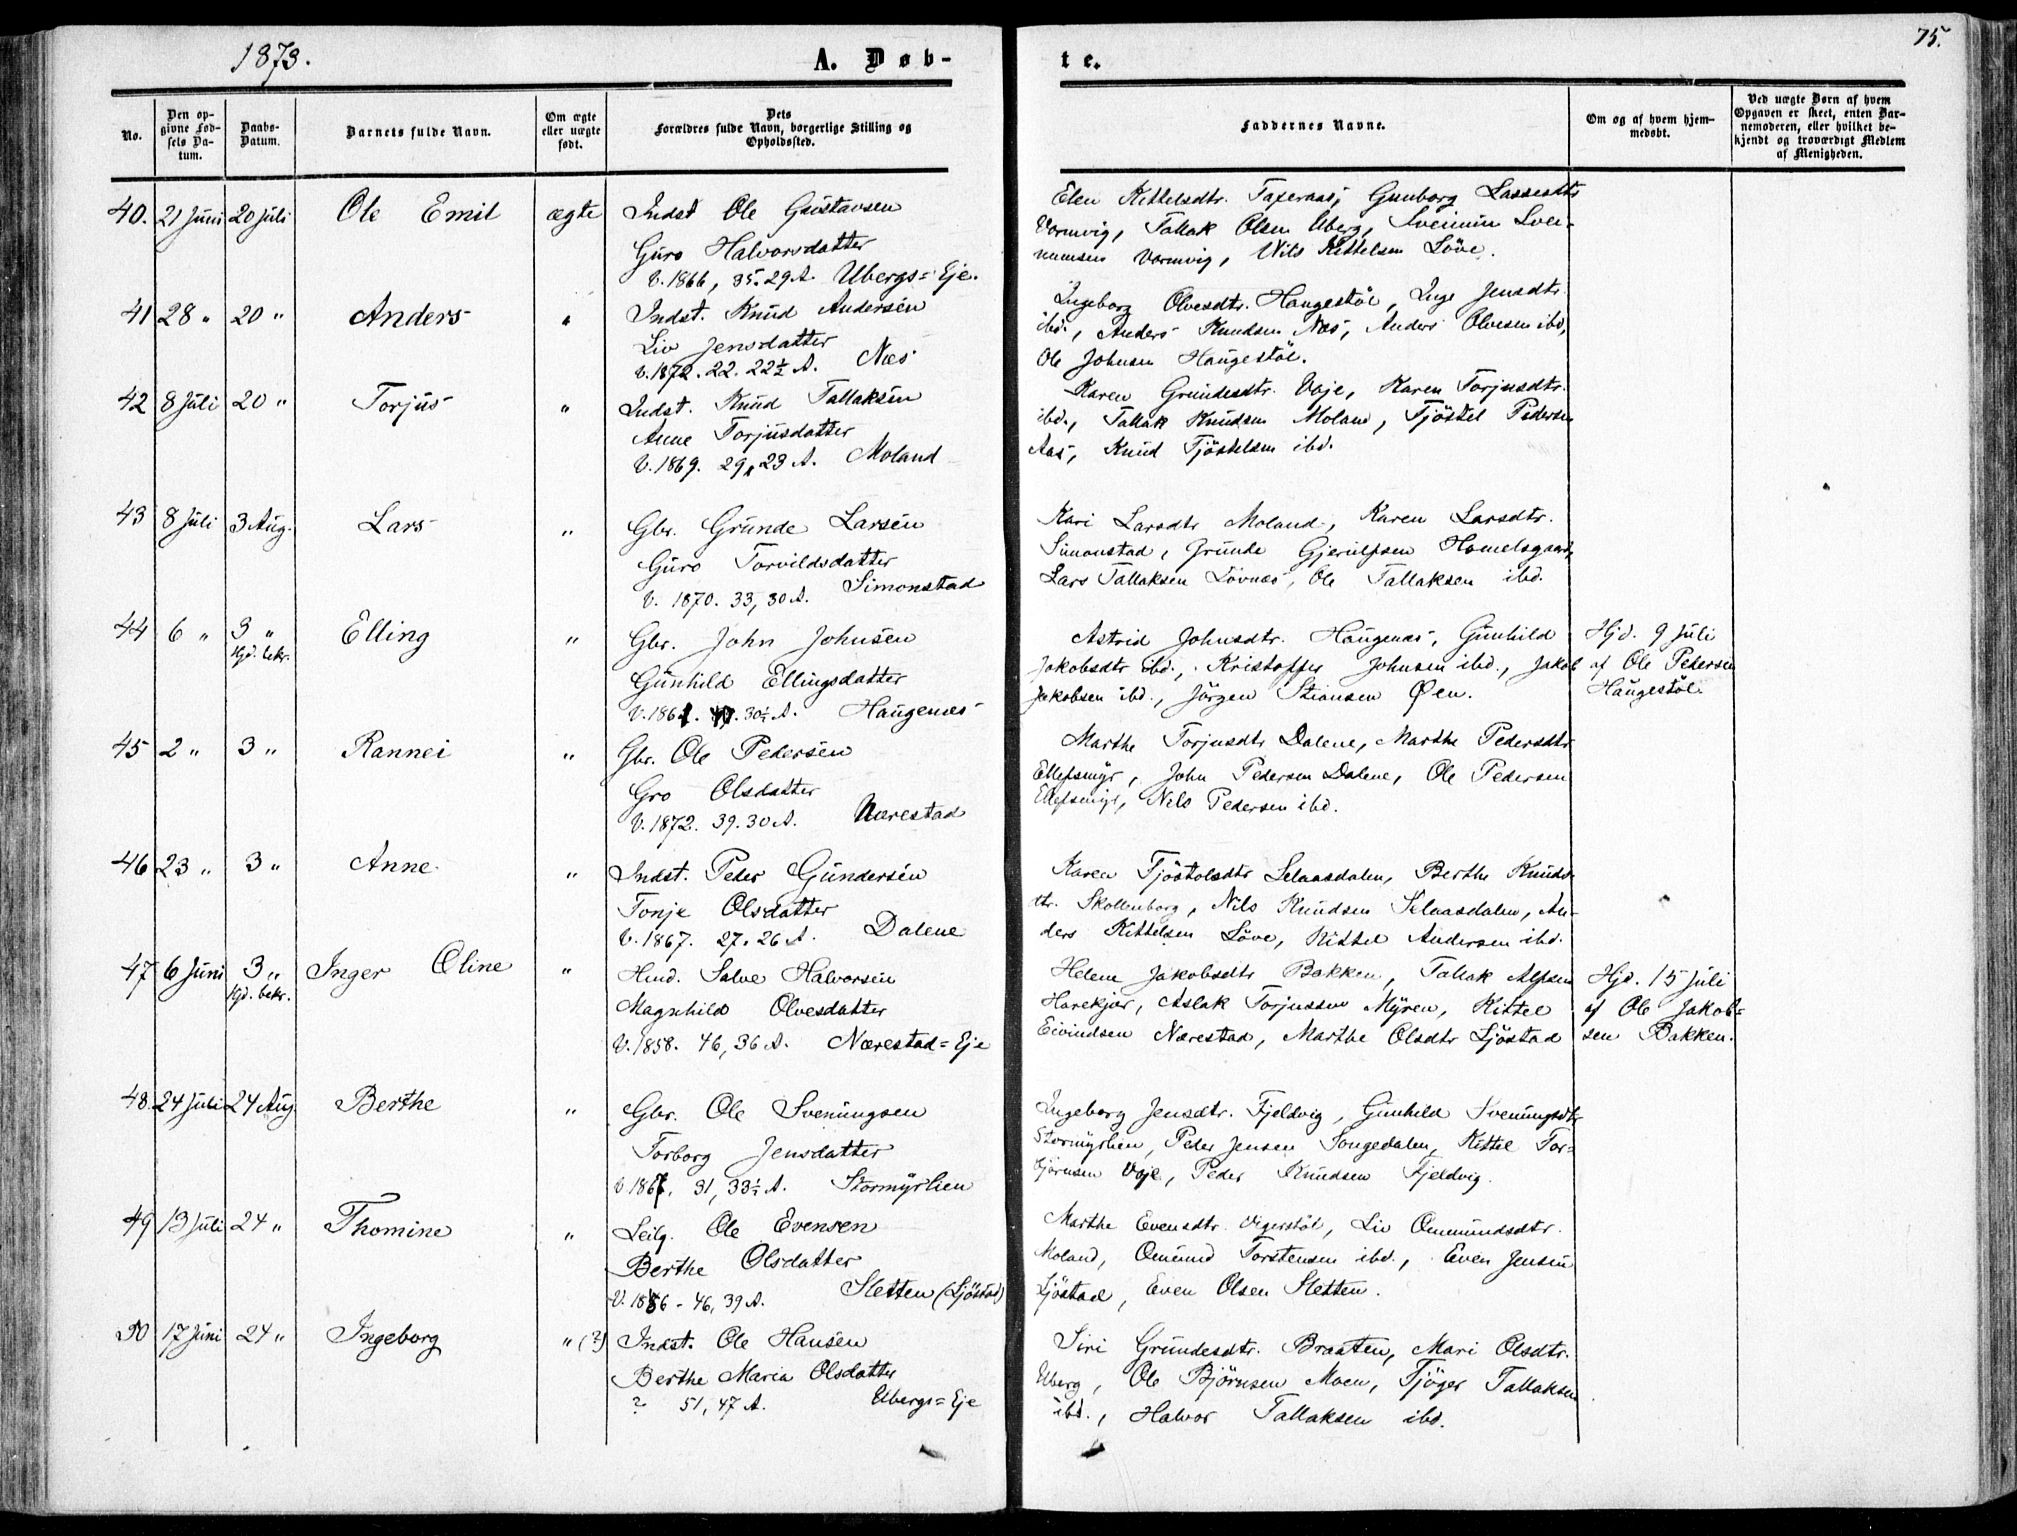 1873.
A. Døb-
te.
75.
No.
Den op-
givne Fød-
sels Da-
tum.
Daabs-
Datum.
Barnets fulde Navn.
Om ægte
eller uægte
født.
Dets
Forældres fulde Navn, borgerlige Stilling og
Opholdssted.
Faddernes Navne.
Om og af hvem hjem-
medøbt.
Ved uægte Børn af hvem
Opgaven er skeet, enten Bar-
nemoderen, eller hvilket be-
kjendt og troværdigt Medlem
af Menigheden.
40. 21 Juni 20 Juli Ole Emil ægte Indst Ole Gustavsen
Guro Halvorsdatter
V. 1866, 35. 29 A. Ubergs=Eje.
Elen Kittelsdtr. Taxeraas, Gunborg Lassesdtr
Vormvig, Tallak Olsen Uberg, Sveinun Svei-
numsen Vormvig, Nils Kittelsen Löve.
41 28 " 20 " Anders " Indst. Knud Andersen
Liv Jensdatter
V. 1872. 22. 22½ A. Næs
Ingeborg Olvesdtr. Haugestöl, Inge Jensdtr
ibd., Anders Knudsen Næs, Anders Olvesen ibd,
Ole Johnsen Haugestöl.
42 8 Juli 20 " Torjus " Indst. Knud Tallaksen
Anne Torjusdatter
V. 1869. 29, 23 A. Moland
Karen Grundesdtr. Voje, Karen Torjusdtr.
ibd., Tallak Knudsen Moland, Tjöstel Pedersen
Aas, Knud Tjöstelsen ibd.
43 8 Juli 3 Aug. Lars " Gbr. Grunde Larsen
Guro Torvildsdatter
V. 1870. 33, 30 A. Simonstad
Kari Larsdtr Moland, Karen Larsdtr.
Simonstad, Grunde Gjerulfsen Homelsgaard,
Lars Tallaksen Lövnæs, Ole Tallaksen ibd.
44 6 " 3 " Elling " Gbr. John Johnsen
Hjd. bekr.
Gunhild Ellingsdatter
30½ A. Haugenæs
Astrid Johnsdtr. Haugenæs, Gunhild
Jakobsdtr ibd., Kristoffer Johnsen ibd., Jakob
Jakobsen ibd., Jörgen Stiansen Øen.
Hjd. 9 Juli
af Ole Pedersen
Haugestöl.
45 2 " 3 " Rannei " Gbr. Ole Pedersen
Gro Olsdatter
V. 1872. 39. 30 A. Nærestad
Marthe Torjusdtr Dalene, Marthe Pedersdtr
Ellefsmyr, John Pedersen Dalene, Ole Pedersen
Ellefsmyr, Nils Pedersen ibd.
46 23 " 3 " Anne " Indst. Peder Gundersen
Tonje Olsdatter
V. 1867. 27. 26 A. Dalene
Karen Tjöstolsdtr Selaasdalen, Berthe Knuds-
dtr. Skollenborg, Nils Knudsen Selaasdalen, An-
ders Kittelsen Löve, Kittel Andersen ibd.
47 6 Juni 3 " Inger Oline " Hmd. Salve Halvorsen
Hjd. bekr.
Magnhild Olvesdatter
V. 1858. 46, 36 A. Nærestad=Eje
Helene Jakobsdtr Bakken, Tallak Alfsen
Harekjær, Aslak Torjussen Myren, Kittel
Eivindsen Nærestad, Marthe Olsdtr Ljöstad
Hjd. 15 Juli
af Ole Jakob=
sen Bakken.
48. 24 Juli 24 Aug. Berthe " Gbr. Ole Svenungsen
Torborg Jensdatter
31, 33½ A. Stormyrlien
Ingeborg Jensdtr. Fjeldvig, Gunhild Svenungsdtr
Stormyrlien, Peder Jensen Songedalen, Kittel Tor=
björnsen Voje, Peder Knudsen Fjeldvig.
49 13 Juli 24 " Thomine " Leilg. Ole Evensen
Berthe Olsdatter
46, 39 A. Sletten (Ljöstad)
Marthe Evensdtr. Vegerstöl, Liv Ommundsdtr.
Moland, Omund Torstensen ibd., Even Jensen
Ljöstad, Even Olsen Sletten.
50 17 Juni 24 " Ingeborg " (?) Indst. Ole Hansen
Berthe Maria Olsdatter
? 51, 47 A. Ubergs=Eje
Siri Grundesdtr. Braaten, Mari Olsdtr.
Uberg, Ole Björnsen Moen, Tjöger Tallaksen
ibd., Halvor Tallaksen ibd.